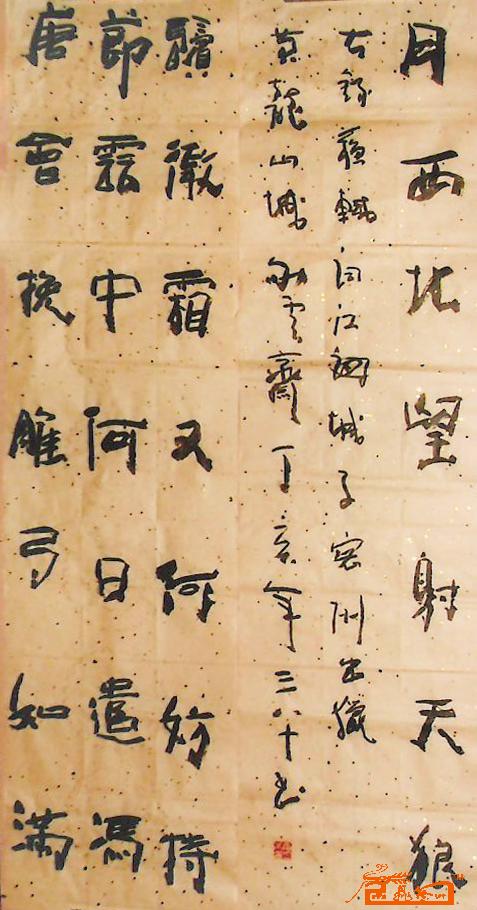 月西北望射天狼
右錄蘇軾詞江城子密州出獵
黃龍山城雲齋丁亥年三八十书
鬢微霜又何妨持
節雲中何日遣馮
唐會挽雕弓如滿